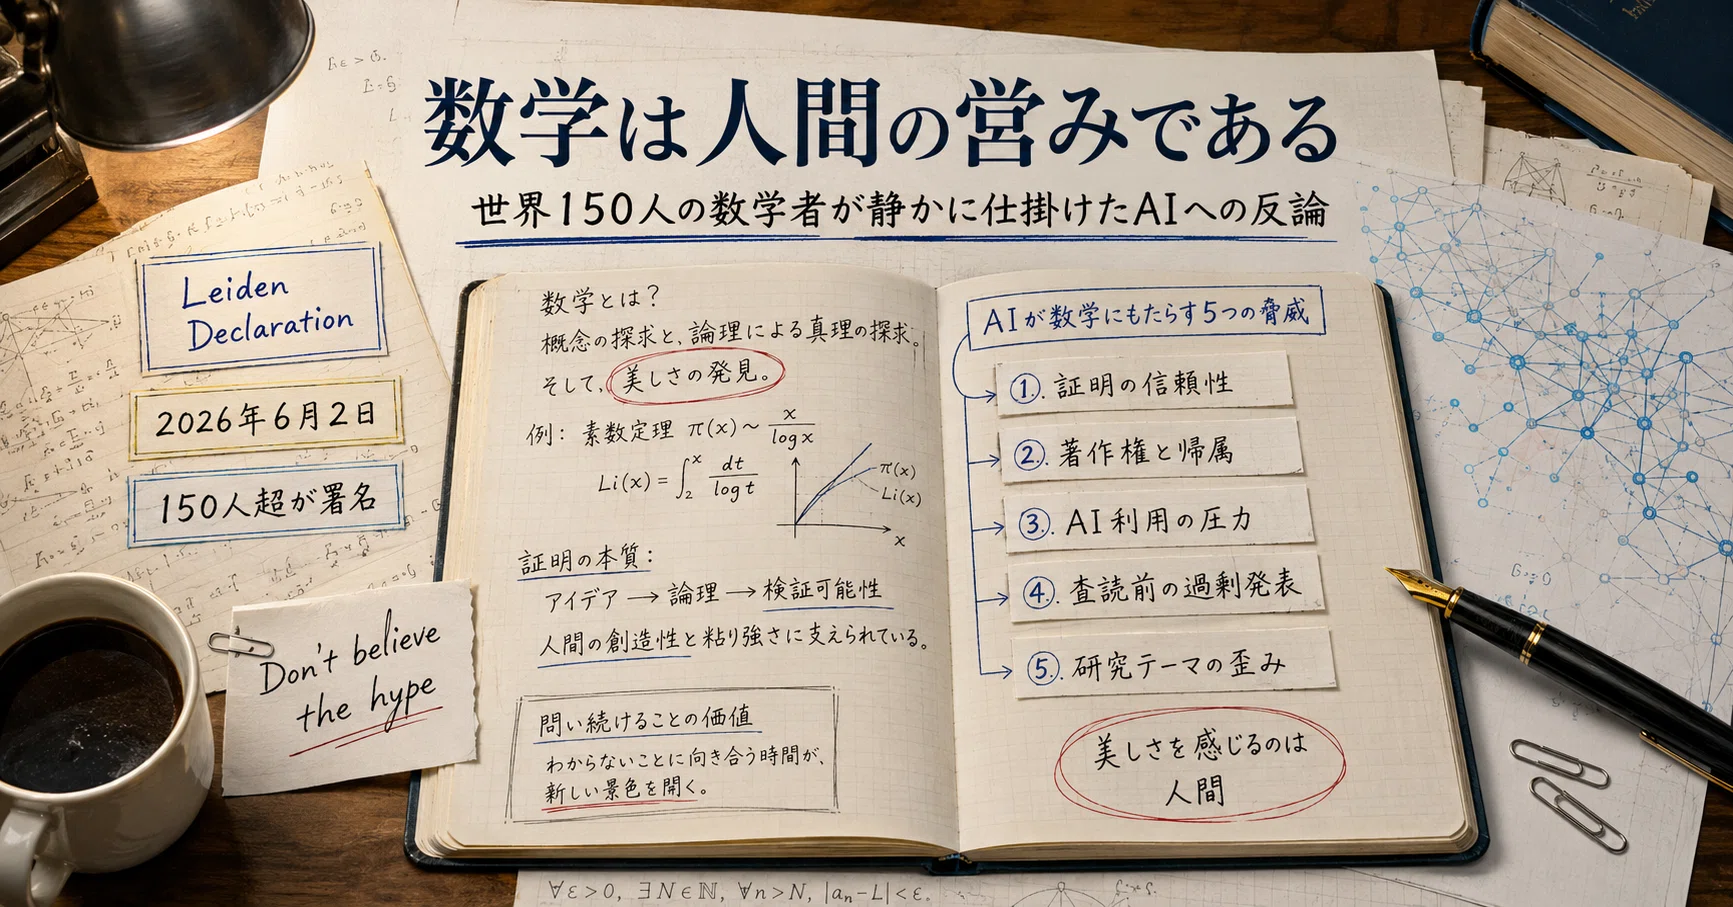 数学は人間の営みである
世界150人の数学者が静かに仕掛けたAIへの反論
Leiden
Declaration
2026年6月2日
150人超が署名
Don't believe
the hype
数学とは?
概念の探求と、論理による真理の探求。
そして、美しさの発見。
例: 素数定理 π(x)~ x/log x
Li(x) = ∫₂ˣ dt/log t
π(x)
Li(x)
x
証明の本質:
アイデア → 論理 → 検証可能性
人間の創造性と粘り強さに支えられている。
問い続けることの価値
わからないことに向き合う時間が、
新しい景色を開く。
AIが数学にもたらす5つの脅威
①. 証明の信頼性
②. 著作権と帰属
③. AI利用の圧力
④. 査読前の過剰発表
⑤. 研究テーマの歪み
美しさを感じるのは
人間
∀ε>0, ∃N∈ℕ, ∀n>N, |aₙ-L|<ε.